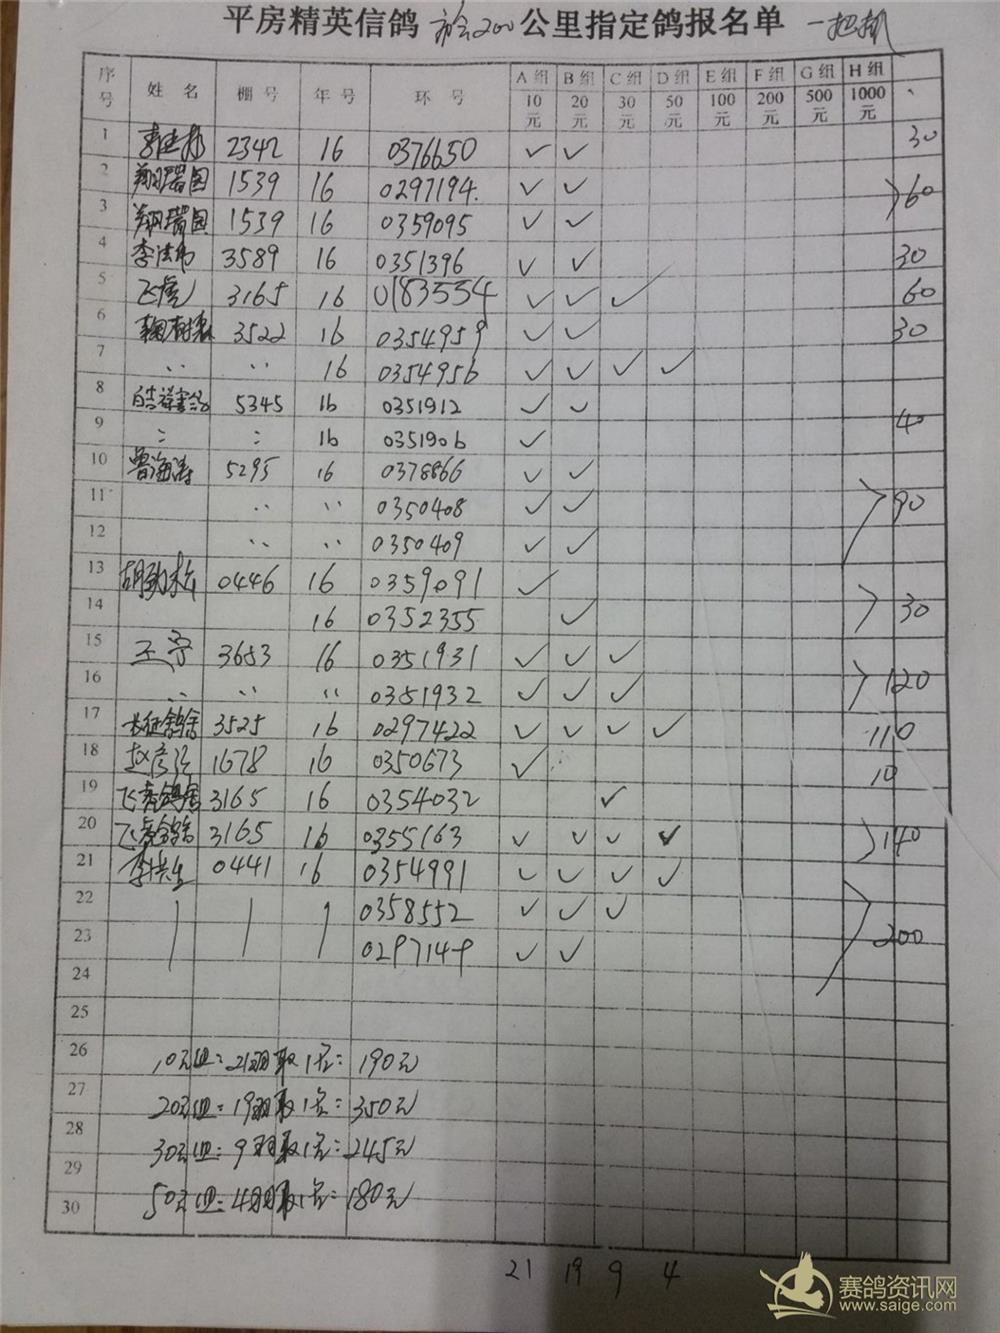 平房精英信鸽 市会200 公里指定鸽报名单 一把抓
序号 姓名 棚号 年号 环号 A组 B组 C组 D组 E组 F组 G组 H组
10元 20元 30元 50元 100元 200元 500元 1000元
1 2342 16 0376650 ✓ ✓ 30
2 翔瑞国 1539 16 0297194 ✓ ✓ 60
3 翔瑞国 1539 16 0359095 ✓ ✓
4 3589 16 0351396 ✓ ✓ 30
5 飞虎 3165 16 0183554 ✓ ✓ ✓ 60
6 3522 16 0354959 ✓ ✓ 30
7 〃 〃 16 0354956 ✓ ✓ ✓ ✓
8 5345 16 0351912 ✓ ✓ 40
9 〃 〃 16 0351906 ✓
10 鲁海涛 5295 16 0378866 ✓ ✓
11 〃 〃 0350408 ✓ ✓ 90
12 〃 〃 0350409 ✓ ✓
13 胡劲松 0446 16 0359091 ✓
14 16 0352355 ✓ 30
15 王宁 3653 16 0351931 ✓ ✓ ✓
16 〃 〃 〃 0351932 ✓ ✓ ✓ 120
17 长征鸽舍 3525 16 0297422 ✓ ✓ ✓ ✓ 110
18 1678 16 0350673 ✓ 10
19 飞虎鸽舍 3165 16 0354032 ✓
20 飞虎鸽舍 3165 16 0355163 ✓ ✓ ✓ ✓ 140
21 0441 16 0354991 ✓ ✓ ✓ ✓
22 0358552 ✓ ✓ ✓
23 0297149 ✓ ✓ 200
24
25
26 10元组:21羽取1名:190元
27 20元组:19羽取1名:350元
28 30元组:9羽取1名:245元
29 50元组:4羽取1名:180元
30
21 19 9 4
赛鸽资讯网
www.saige.com